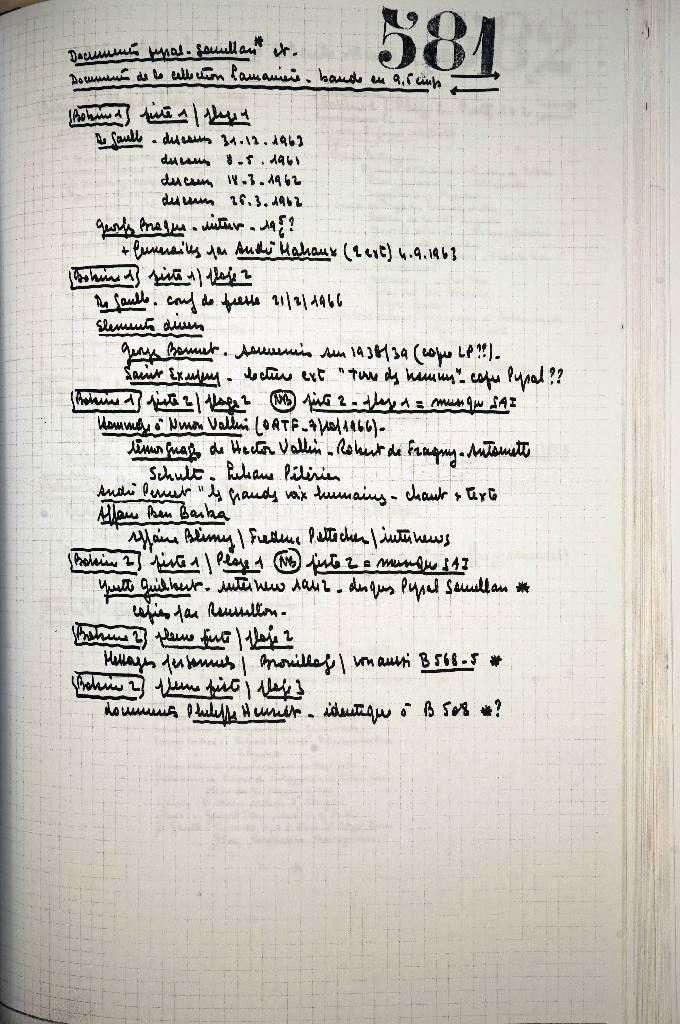 581
Documents pysal-samullan* et.
Documents de la collection Lamanière. bande en 9,5 cm/s
Bobine 1 piste 1 | plage 1
De Gaulle - discours 31.12.1963
discours 8.5.1961
discours 18.3.1962
discours 26.3.1962
Georges Braque - interv - 19 ?
+ funérailles par André Malraux (2 ext) 4.9.1963
Bobine 1 piste 1 | plage 2
De Gaulle. conf de presse 21/2/1966
Elements divers
Georges Bonnet. souvenirs sur 1938/39 (copie LP??).
Saint Exupery - lecture ext "Terre des hommes". copie Pysal ??
Bobine 1 piste 2 | plage 2 NB piste 2 - plage 1 = musique SAI
Hommage à Ninon Vallin (ORTF - 7/10/1966).
témoignages de Hector Vallin. Robert de Fragny. Antoinette
Schulte - Liliane
André Pernet "les grandes voix humaines - chant + texte
Affaire Ben Barka
Affaire | Frédéric | interviews
Bobine 2 piste 1 | Plage 1 NB piste 2 = musique SAI
Yvette Guilbert. interview 1942 - disques Pysal Samullan *
copies par Roussillon.
Bobine 2 pleine piste | plage 2
Messages personnels | Brouillage | voir aussi B 568-5 *
Bobine 2 pleine piste | plage 3
documents Philippe Henriot - identique à B 508 *?